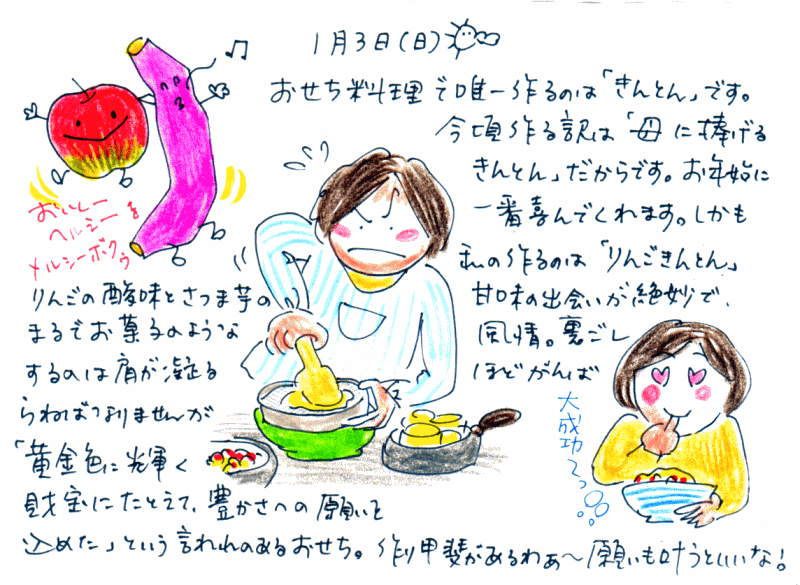 1月3日(日)
おせち料理で唯一作るのは「きんとん」です。
今頃作る訳は「母に捧げる
きんとん」だからです。お年始に
一番喜んでくれます。しかも
私の作るのは「りんごきんとん」
りんごの酸味とさつま芋の
甘味の出会いが絶妙で、
まるでお菓子のような
風情。裏ごし
するのは肩が凝る
ほどがんば
らねばなりませんが
「黄金色に輝く
財宝にたとえて、豊かさへの願いを
込めた」という言われのあるおせち。作り甲斐があるわぁ〜願いも叶うといいな!
おいしー
ヘルシーを
メルシーボクゥ
大成功